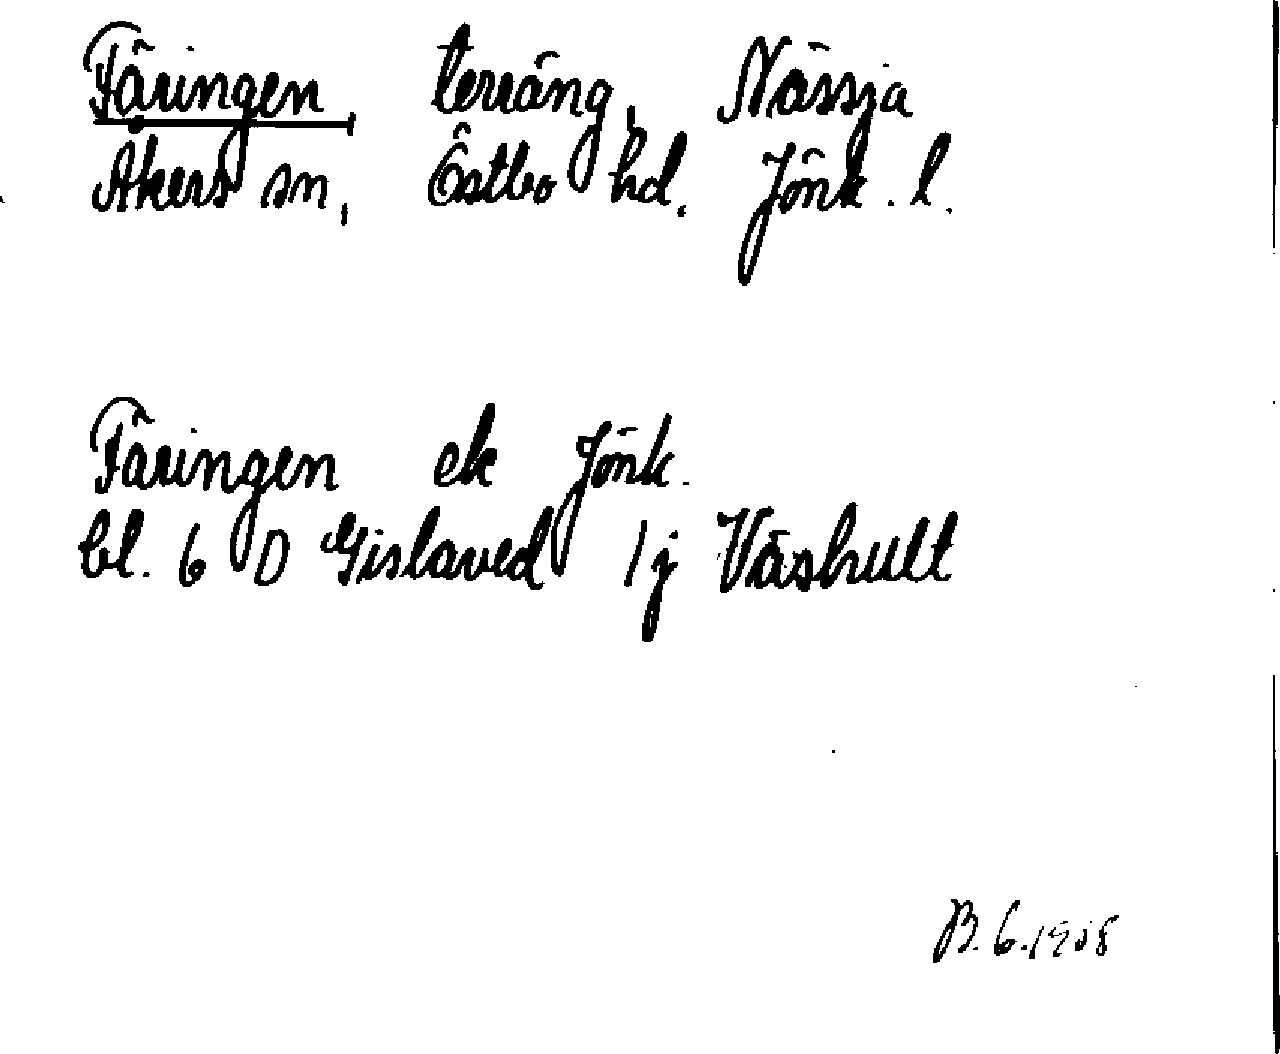 Täringen, terräng, Nässja
Åkers sn, Östbo hd. Jönk. l.
Täringen ek Jönk.
bl. 6 D Gislaved 1j Våshult
B. 6.1958